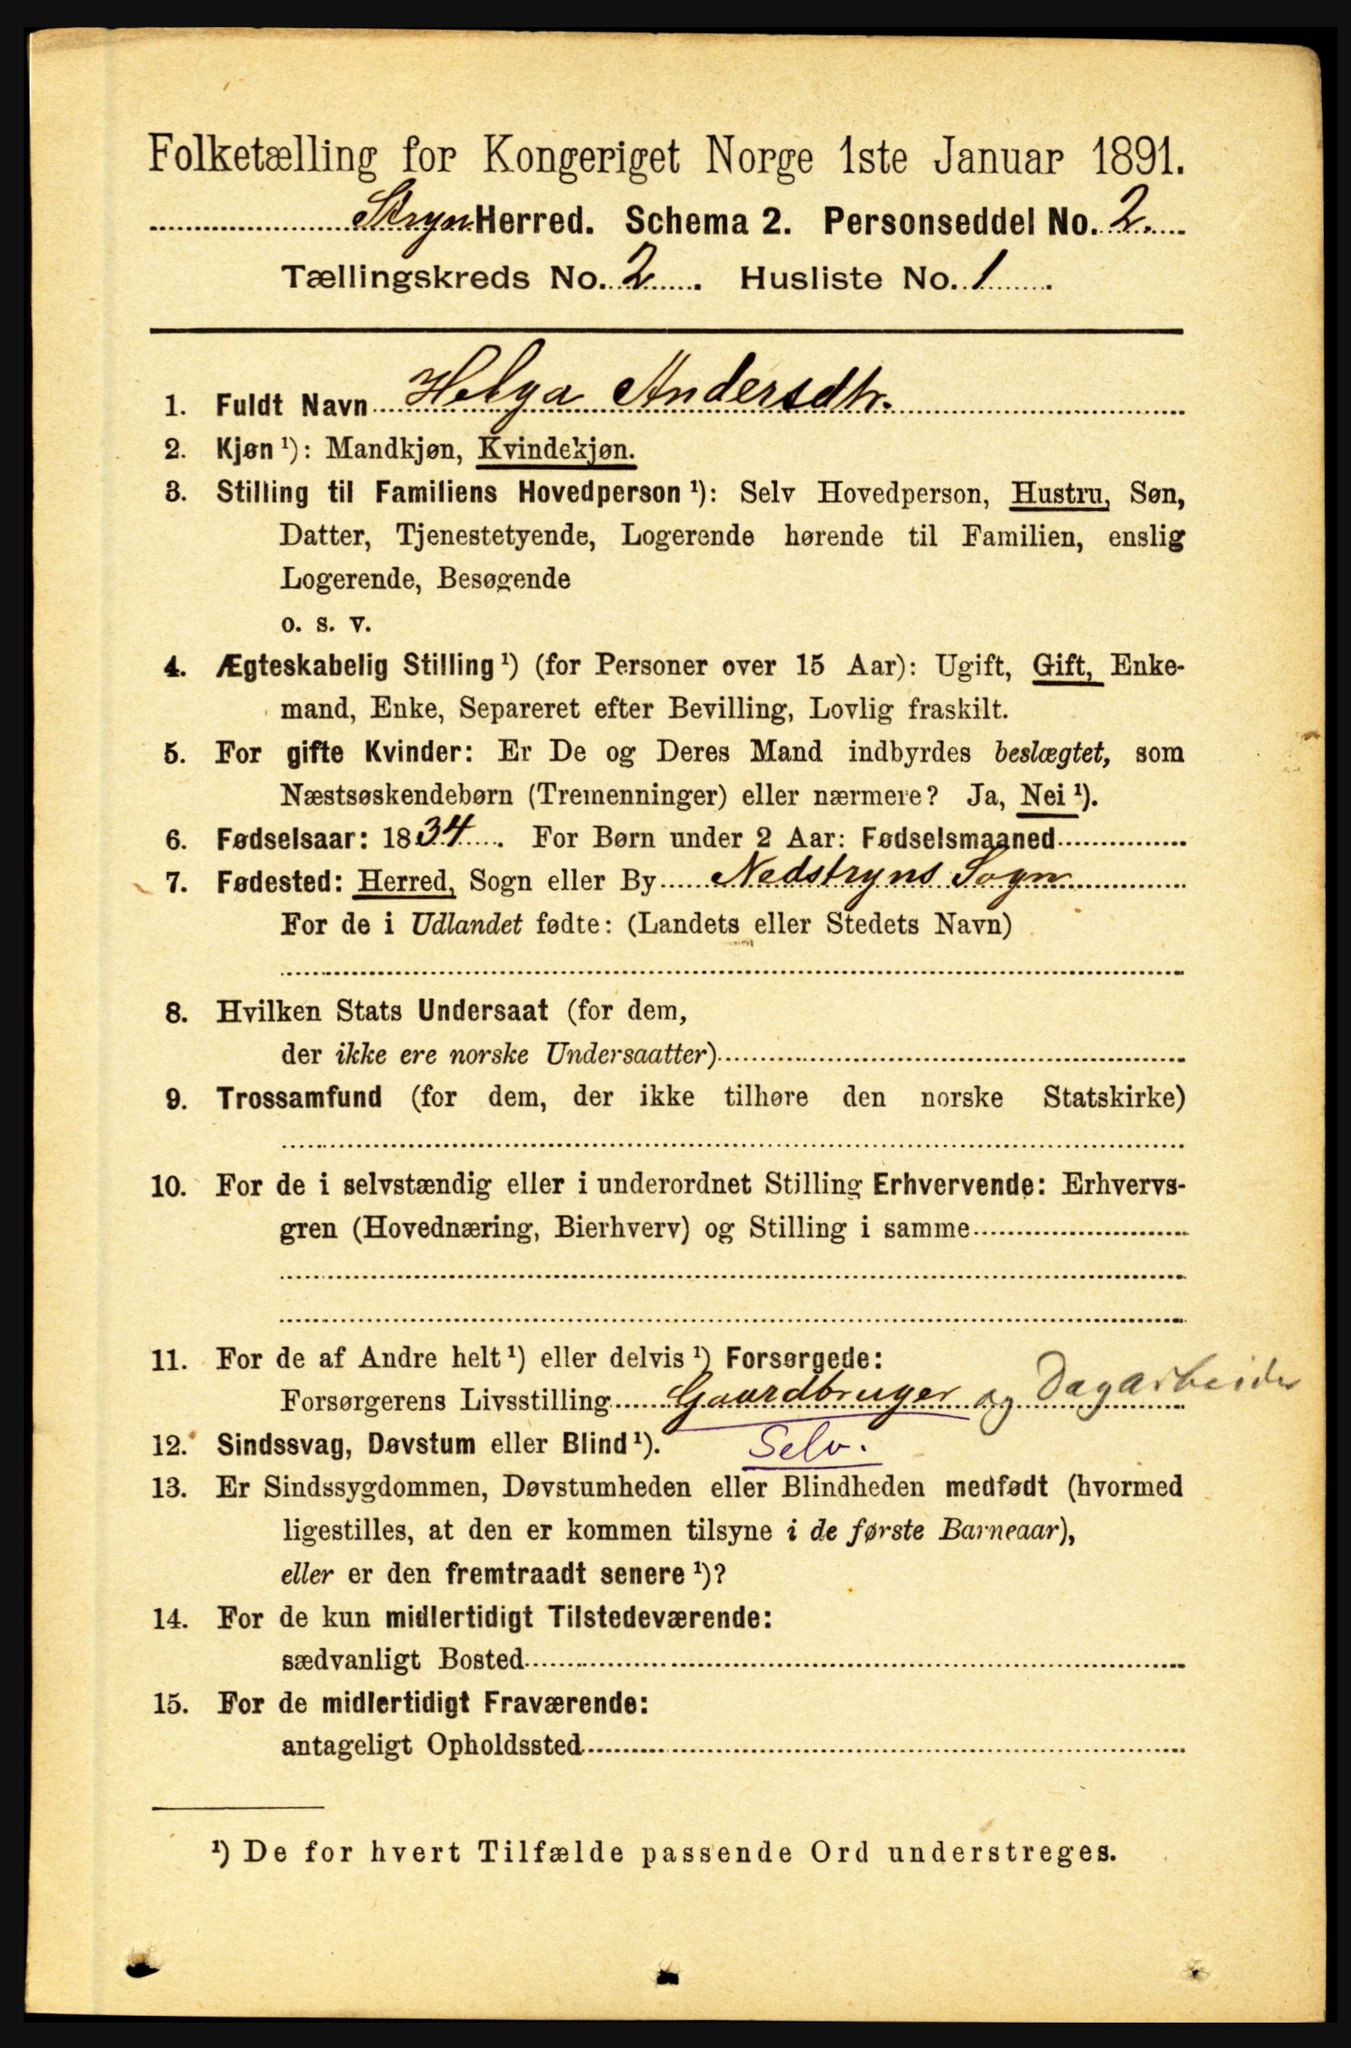 Folketælling for Kongeriget Norge 1ste Januar 1891.
Stryn Herred. Schema 2. Personseddel No. 2.
Tællingskreds No. 2. Husliste No. 1.
1. Fuldt Navn Helga Andersdtr.
2. Kjøn ¹): Mandkjøn, Kvindekjøn.
3. Stilling til Familiens Hovedperson ¹): Selv Hovedperson, Hustru, Søn,
Datter, Tjenestetyende, Logerende hørende til Familien, enslig
Logerende, Besøgende
o. s. v.
4. Ægteskabelig Stilling ¹) (for Personer over 15 Aar): Ugift, Gift, Enke-
mand, Enke, Separeret efter Bevilling, Lovlig fraskilt.
5. For gifte Kvinder: Er De og Deres Mand indbyrdes beslægtet, som
Næstsøskendebørn (Tremenninger) eller nærmere? Ja, Nei ¹).
6. Fødselsaar: 1834. For Børn under 2 Aar: Fødselsmaaned
7. Fødested: Herred, Sogn eller By Nedstryns Sogn
For de i Udlandet fødte: (Landets eller Stedets Navn)
8. Hvilken Stats Undersaat (for dem,
der ikke ere norske Undersaatter)
9. Trossamfund (for dem, der ikke tilhøre den norske Statskirke)
10. For de i selvstændig eller i underordnet Stilling Erhvervende: Erhvervs-
gren (Hovednæring, Bierhverv) og Stilling i samme
11. For de af Andre helt ¹) eller delvis ¹) Forsørgede:
Forsørgerens Livsstilling Gaardbruger og Dagarbeider
12. Sindssvag, Døvstum eller Blind ¹). Selv.
13. Er Sindssygdommen, Døvstumheden eller Blindheden medfødt (hvormed
ligestilles, at den er kommen tilsyne i de første Barneaar),
eller er den fremtraadt senere ¹)?
14. For de kun midlertidigt Tilstedeværende:
sædvanligt Bosted
15. For de midlertidigt Fraværende:
antageligt Opholdssted
¹) De for hvert Tilfælde passende Ord understreges.